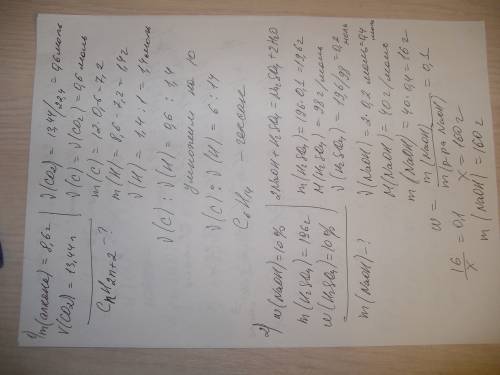 1) m(алкана) = 8,6г | ν(CO2) = 13,44/22,4 = 0,6 моль
V(CO2) = 13,44л | ν(C) = ν(CO2) = 0,6 моль
m(C) = 12·0,6 = 7,2
CnH2n+2 - ? m(H) = 8,6 - 7,2 = 1,4г
ν(H) = 1,4 : 1 = 1,4 моль
ν(C) : ν(H) = 0,6 : 1,4
умножим на 10
ν(C) : ν(H) = 6 : 14
C6H14 - гексан
2) w(NaOH) = 10% | 2NaOH + H2SO4 = Na2SO4 + 2H2O
m(H2SO4) = 196г | m(H2SO4) = 196·0,1 = 19,6г
w(H2SO4) = 10% | M(H2SO4) = 98г/моль
ν(H2SO4) = 19,6/98 = 0,2 моль
m(NaOH) - ? ν(NaOH) = 2·0,2 моль = 0,4 моль
M(NaOH) = 40г/моль
m(NaOH) = 40·0,4 = 16г
w = m(NaOH) / m(р-ра NaOH) = 0,1
16/x = 0,1 x = 160г
m(NaOH) = 160г